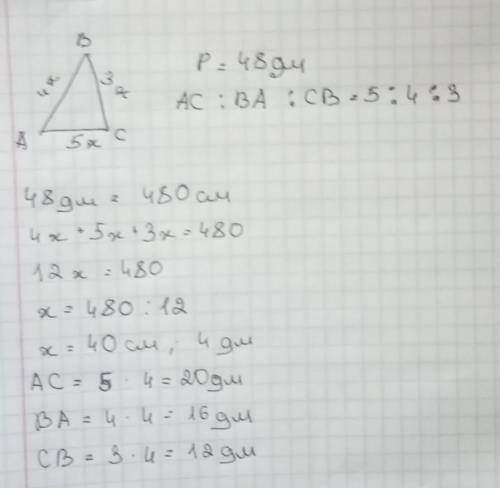 B
4x
3x
A
5x
C
P = 48 дм
AC : BA : CB = 5 : 4 : 3
48 дм = 480 см
4x + 5x + 3x = 480
12x = 480
x = 480 : 12
x = 40 см, 4 дм
AC = 5 · 4 = 20 дм
BA = 4 · 4 = 16 дм
CB = 3 · 4 = 12 дм